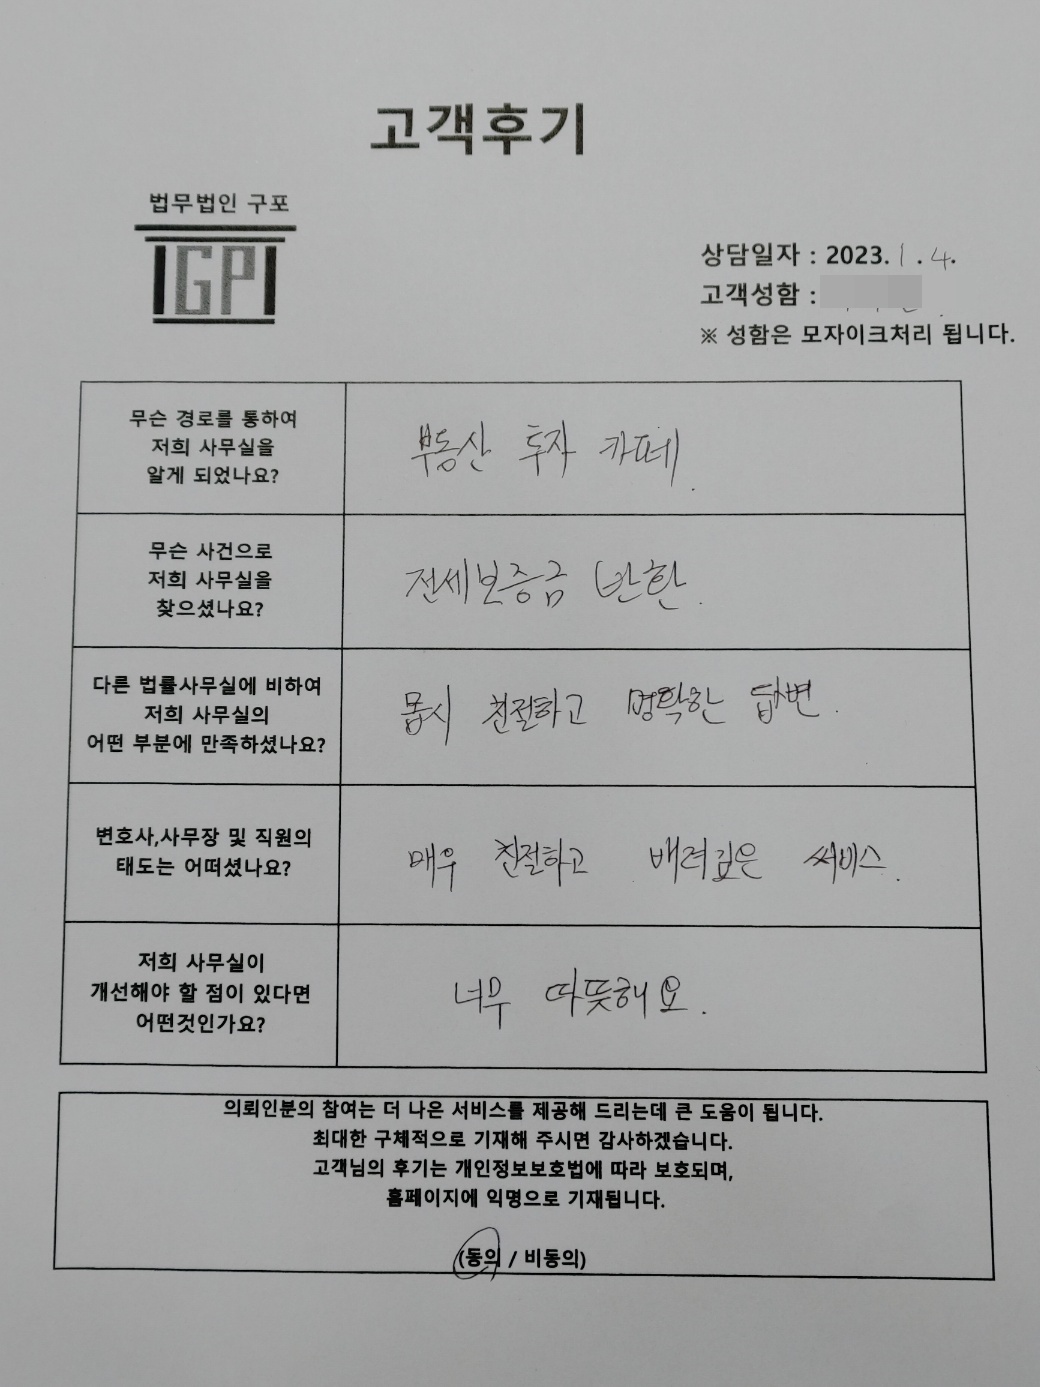 고객후기
법무법인 구포
IGPI
상담일자 : 2023. 1. 4.
고객성함 :
※ 성함은 모자이크처리 됩니다.
무슨 경로를 통하여
저희 사무실을
알게 되었나요?
부동산 투자 카페.
무슨 사건으로
저희 사무실을
찾으셨나요?
전세보증금 반환.
다른 법률사무실에 비하여
저희 사무실의
어떤 부분에 만족하셨나요?
몹시 친절하고 명확한 답변.
변호사,사무장 및 직원의
태도는 어떠셨나요?
매우 친절하고 배려깊은 써비스.
저희 사무실이
개선해야 할 점이 있다면
어떤것인가요?
너무 따뜻해요.
의뢰인분의 참여는 더 나은 서비스를 제공해 드리는데 큰 도움이 됩니다.
최대한 구체적으로 기재해 주시면 감사하겠습니다.
고객님의 후기는 개인정보보호법에 따라 보호되며,
홈페이지에 익명으로 기재됩니다.
(동의 / 비동의)